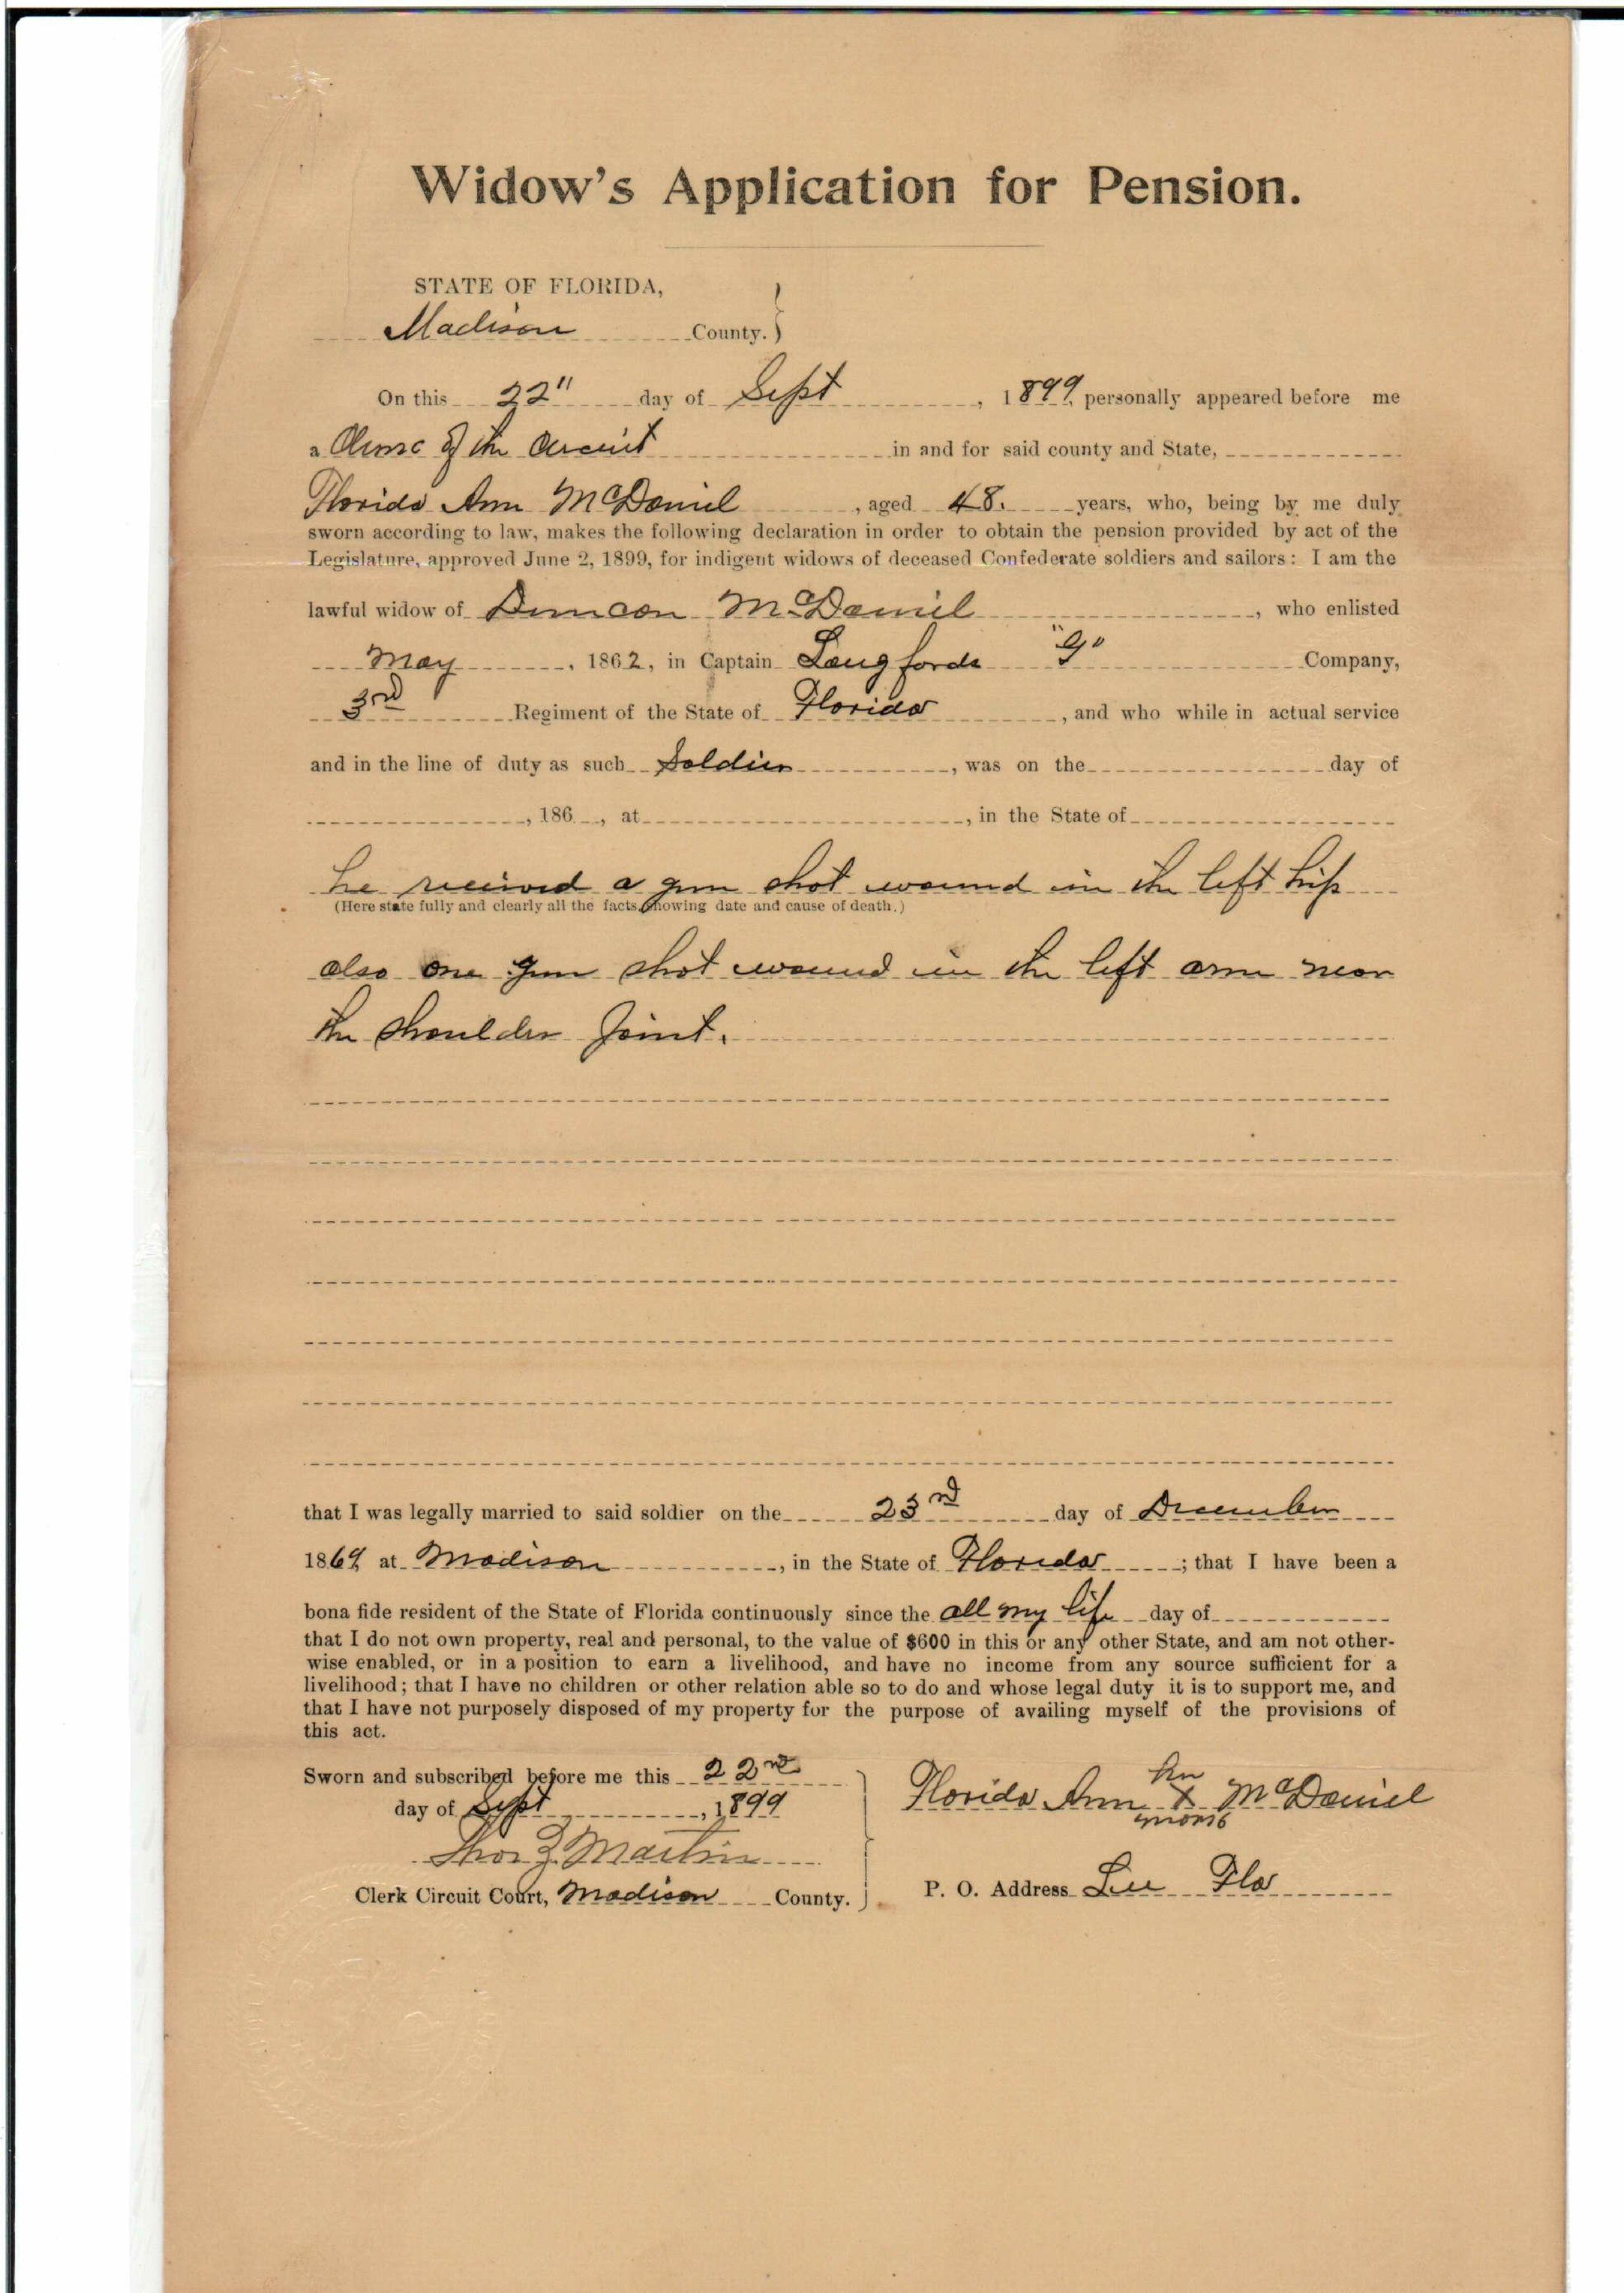 Widow's Application for Pension.
STATE OF FLORIDA,
Madison County. }
On this 22" day of Sept , 1899, personally appeared before me
a of the Circuit in and for said county and State,
Florida Ann McDaniel , aged 48. years, who, being by me duly
sworn according to law, makes the following declaration in order to obtain the pension provided by act of the
Legislature, approved June 2, 1899, for indigent widows of deceased Confederate soldiers and sailors: I am the
lawful widow of Duncan McDaniel , who enlisted
May , 1862, in Captain Langfords "G" Company,
3rd Regiment of the State of Florida , and who while in actual service
and in the line of duty as such Soldier , was on the day of
, 186 , at , in the State of
he received a gun shot wound in the left hip
(Here state fully and clearly all the facts, showing date and cause of death.)
also one gun shot wound in the left arm near
the shoulder Joint.
that I was legally married to said soldier on the 23rd day of December
1869, at Madison , in the State of Florida ; that I have been a
bona fide resident of the State of Florida continuously since the all my life day of
that I do not own property, real and personal, to the value of $600 in this or any other State, and am not other-
wise enabled, or in a position to earn a livelihood, and have no income from any source sufficient for a
livelihood; that I have no children or other relation able so to do and whose legal duty it is to support me, and
that I have not purposely disposed of my property for the purpose of availing myself of the provisions of
this act.
Sworn and subscribed before me this 22nd
day of Sept , 1899
her
Florida Ann X McDaniel
mark
Thos Z. Martin
Clerk Circuit Court, Madison County.
P. O. Address Lee Fla